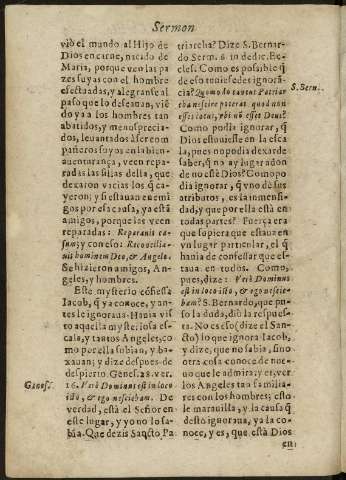 Sermon
viò el mundo al Hijo de
Dios encarne, nacido de
Maria, porque ven las pa
zes suyas con el hombre
efectuadas, y alegranse al
paso que lo deseauan, viē
do ya a los hombres tan
abatidos, y menosprecia-
dos, leuantados àser com
pañeros suyos en la bien-
auenturança, veen repa-
radas las sillas della, que
dexaron vacias los q̃ ca
yeron; y si estauan enemi
gos por esa causa, ya està
amigos, porque les veen
reparadas: Reparauit ca-
sum; y con eso: Reconcilia-
uit hominem Deo, & Angelo.
Se hizieron amigos, An-
geles, y hombres.
Este mysterio cōfiessa
Iacob, q̃ ya conoce, y an-
tes le ignoraua. Hauia vis
to aquella mysteriosa es-
cala, y tantos Angeles, co
mo por ella subian, y ba-
xauan; y dize despues de
despierto. Genes. 28. ver.
Genes.
16. Verè Dominus est in loco
isto, & ego nesciebam. De
verdad, està el Señor en
este lugar, y yo no lo sa-
bia. Que dezis Sancto Pa
triarcha? Dize S. Bernar-
do Serm. 6. in dedic. Ec-
cles. Como es posible q̃
de eso tuuiesedes ignorā-
cia? Quomodo tantus Patriar
S. Bern.
cha nescire poterat quod non
esset locus, vbi nō esset Deus?
Como podia ignorar, q̃
Dios estuuiesse en la esca
la, pues no podia dexar de
saber, q̃ no ay lugar adon
de no estè Dios? Como po
dia ignorar, q̃ vno de sus
atributos, es la inmensi-
dad, y que por ella està en
todas partes? Fuerça era
que supiera que estaua en
vn lugar particular, el q̃
hauia de confessar que es-
taua en todos. Como,
pues, dize: Verè Dominus
est in loco isto, & ego nescie-
bam? S. Bernardo, que pu-
so la duda, diò la respues-
ta. No es eso (dize el San-
cto) lo que ignora Iacob,
y dize, que no sabia, sino
otra cosa conoce de nue-
uo que le admira; y es, ver
los Angeles tan familia-
res con los hombres; esto
le marauilla, y la causa q̃
desto ignoraua, ya la co-
noce, y es, que està Dios
en